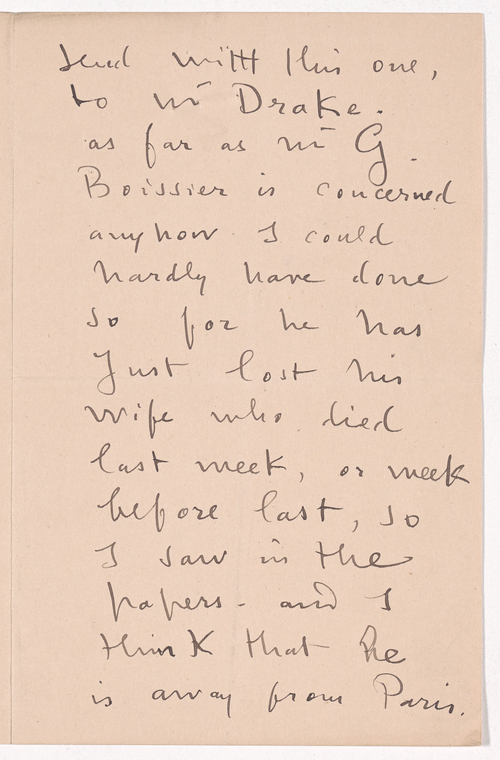 send with this one,
to Mr Drake.
as far as Mr G.
Boissier is concerned
anyhow I could
hardly have done
so for he has
Just lost his
wife who died
last week, or week
before last, so
I saw in the
papers - and I
think that he
is away from Paris.